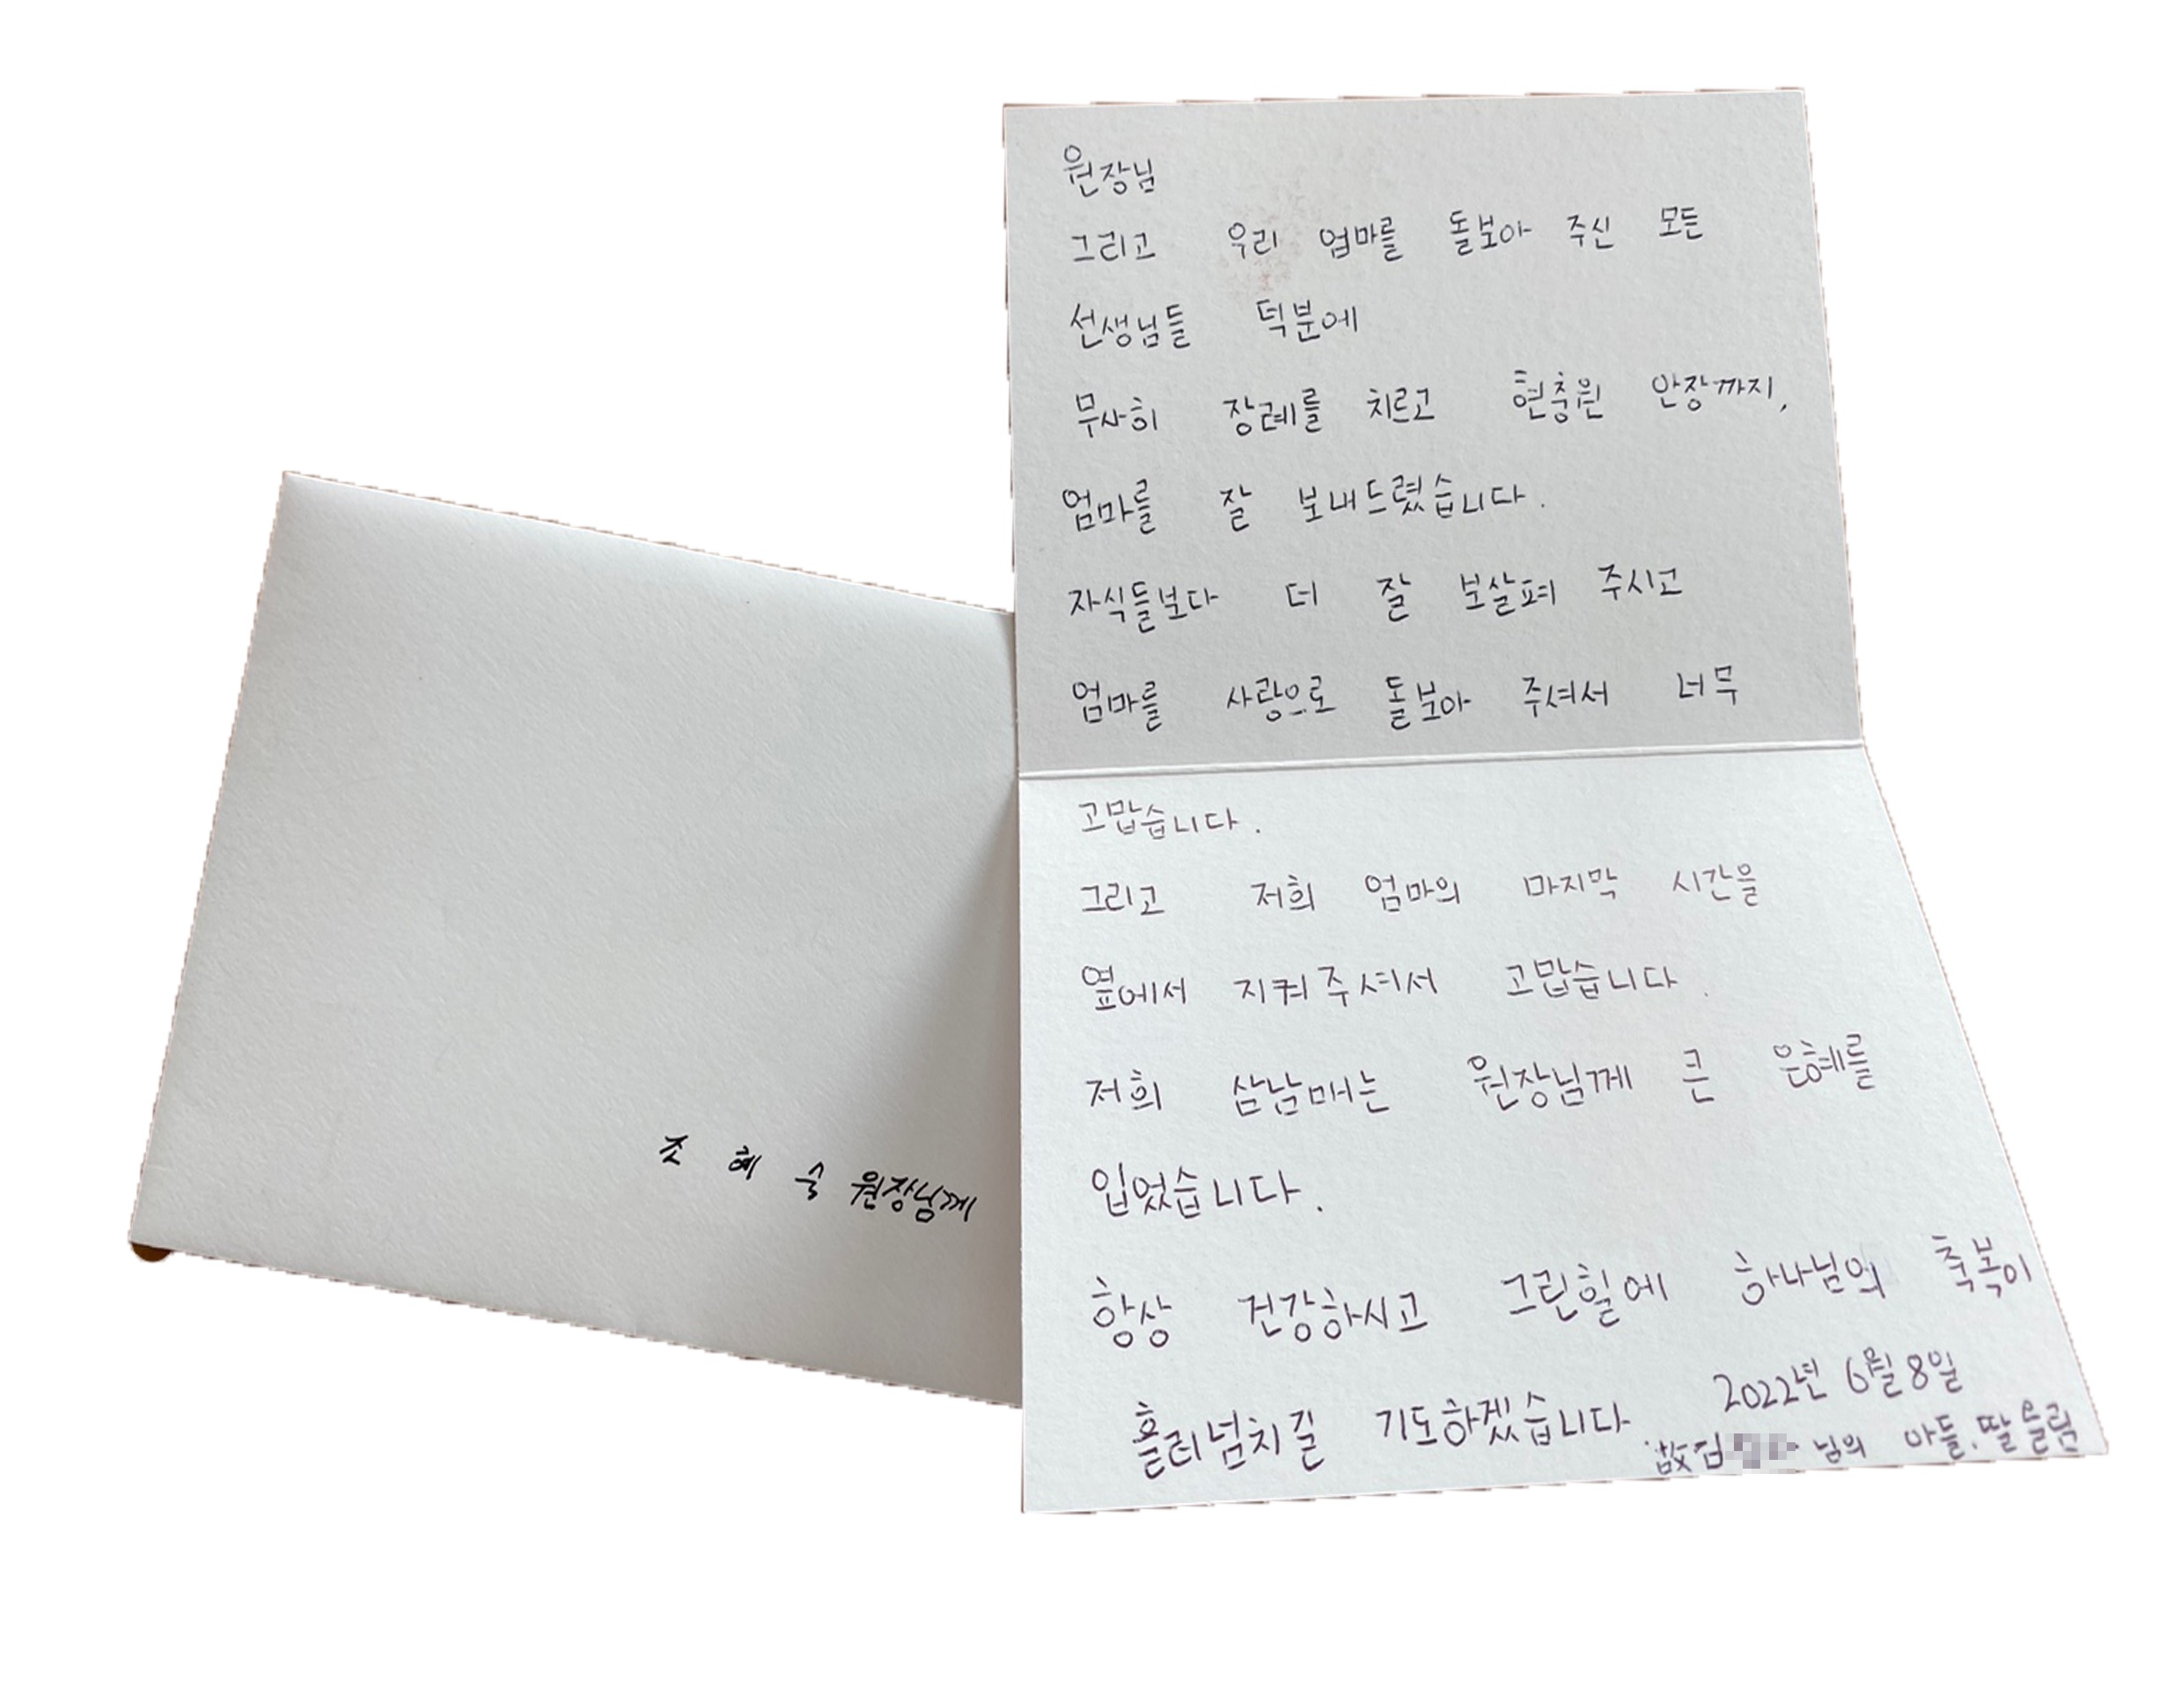 조 혜 숙 원장님께
원장님
그리고 우리 엄마를 돌보아 주신 모든
선생님들 덕분에
무사히 장례를 치르고 현충원 안장까지,
엄마를 잘 보내드렸습니다.
자식들보다 더 잘 보살펴 주시고
엄마를 사랑으로 돌보아 주셔서 너무
고맙습니다.
그리고 저희 엄마의 마지막 시간을
옆에서 지켜주셔서 고맙습니다.
저희 삼남매는 원장님께 큰 은혜를
입었습니다.
항상 건강하시고 그린힐에 하나님의 축복이
흘러넘치길 기도하겠습니다.
2022년 6월 8일
故김 님의 아들.딸 올림